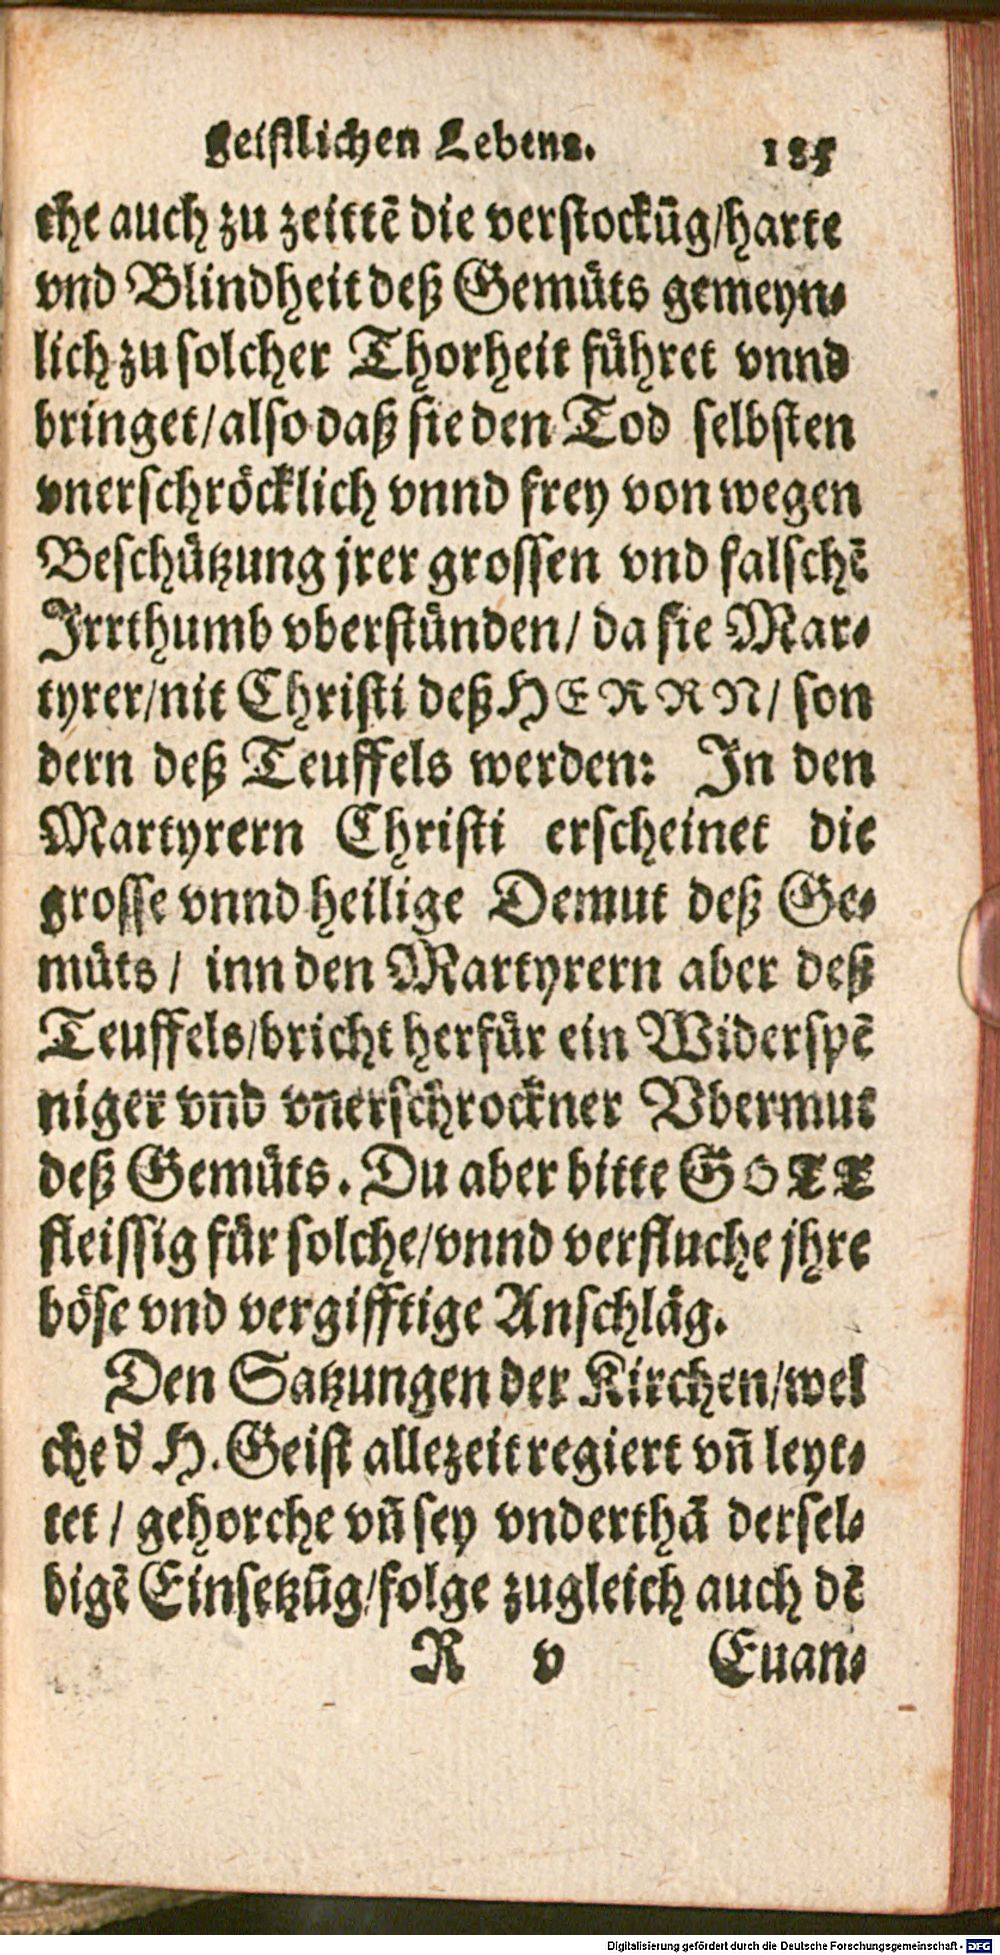 geistlichen Lebens. 185
che auch zu zeittē die verstockūg/harte
vnd Blindheit deß Gemüts gemeyn-
lich zu solcher Thorheit führet vnnd
bringet/also daß sie den Tod selbsten
vnerschröcklich vnnd frey von wegen
Beschützung jrer grossen vnd falschē
Irrthumb vberstünden/ da sie Mar-
tyrer/nit Christi deß HERRN/ son
dern deß Teuffels werden: In den
Martyrern Christi erscheinet die
grosse vnnd heilige Demut deß Ge-
müts/ inn den Martyrern aber deß
Teuffels/bricht herfür ein Widerspē
niger vnd vnerschrockner Vbermut
deß Gemüts. Du aber bitte GOTT
fleissig für solche/vnnd verfluche jhre
böse vnd vergifftige Anschläg.
Den Satzungen der Kirchen/wel
che d' H. Geist allezeit regiert vñ leyt-
tet/ gehorche vñ sey vnderthā dersel-
bigē Einsetzūg/folge zugleich auch dē
R v Euan-
Digitalisierung gefördert durch die Deutsche Forschungsgemeinschaft - DFG